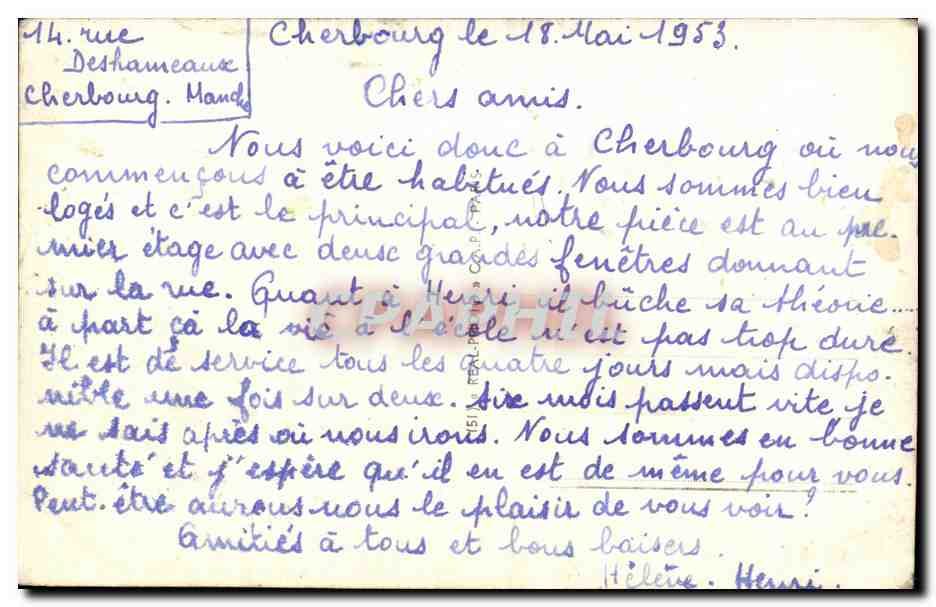 14. rue
Deshameaux
Cherbourg. Manche
Cherbourg le 18. Mai 1953.
Chers amis.
Nous voici donc à Cherbourg où nous
commençons à être habitués. Nous sommes bien
logés et c'est le principal, notre pièce est au pre-
mier étage avec deux grandes fenêtres donnant
sur la rue. Quant à Henri, il bûche sa théorie.....
à part çà la vie à l'école n'est pas trop dure.
Il est de service tous les quatre jours mais dispo-
nible une fois sur deux. six mois passent vite je
ne sais après où nous irons. Nous sommes en bonne
santé et j'espère qu'il en est de même pour vous.
Peut-être aurons nous le plaisir de vous voir?
Amitiés à tous et bons baisers.
Hélène. Henri.
CPARHIT
"REAL-PHOTO" C.A.P. PARIS